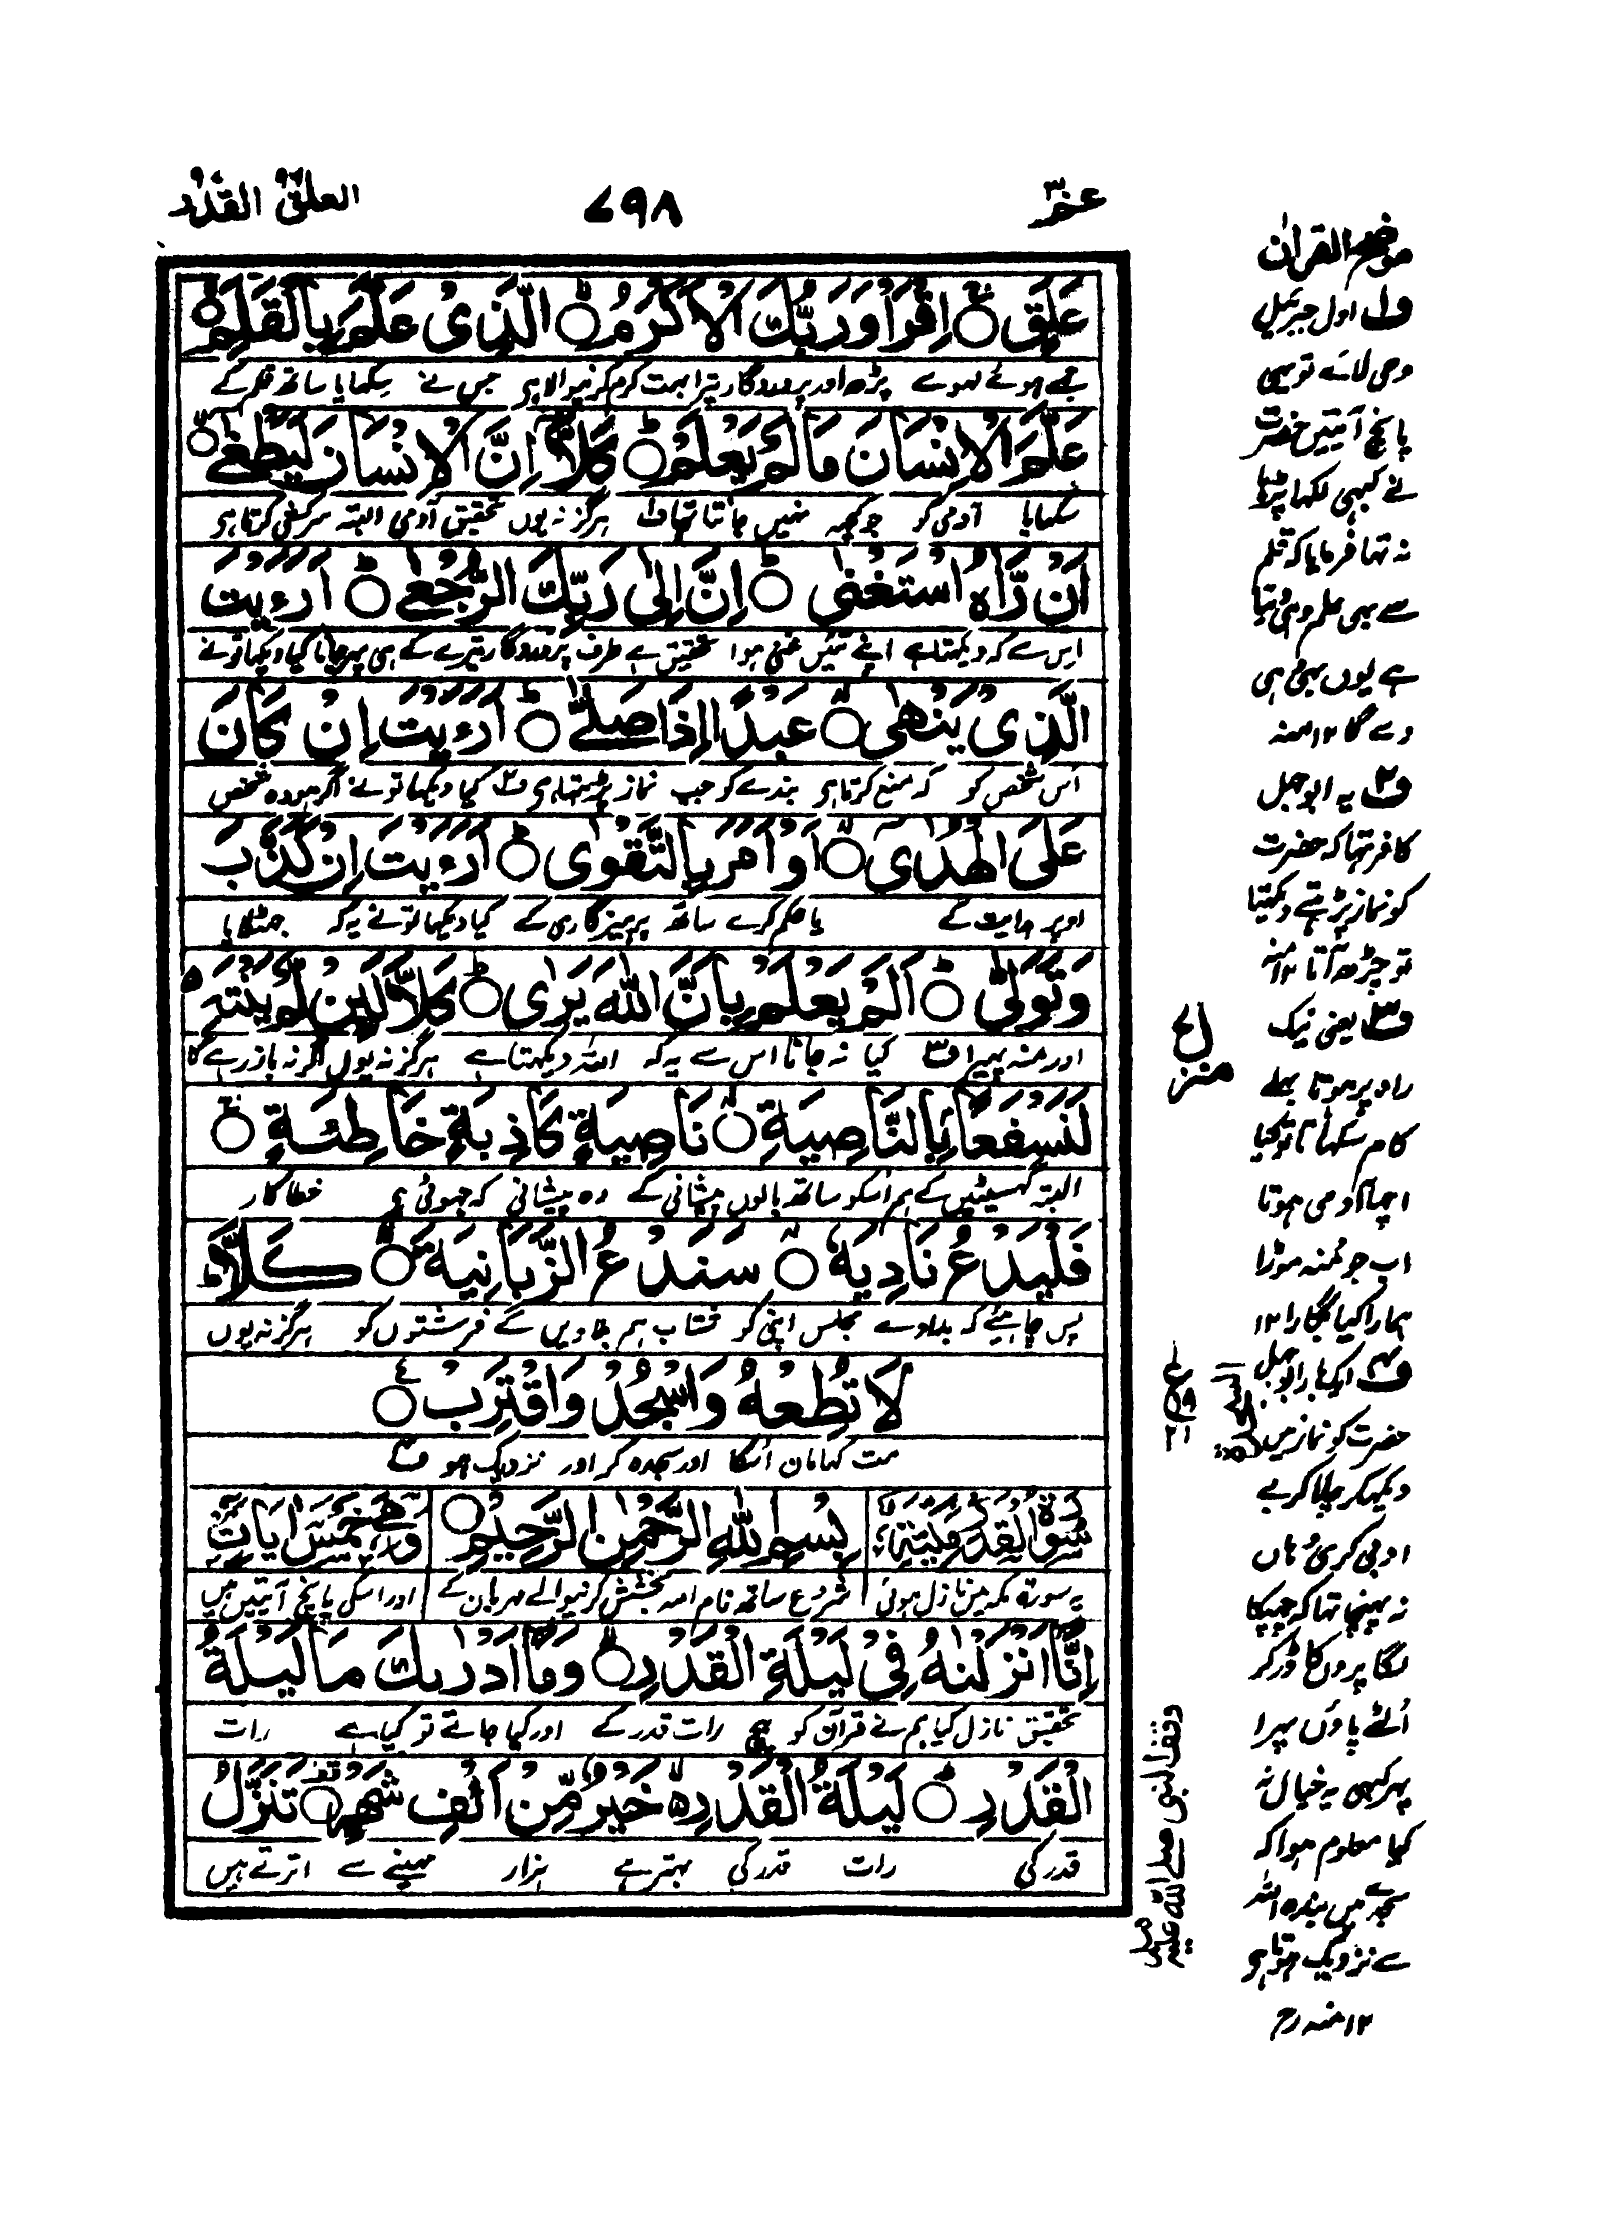 عم ٣٠
٧٩٨
العلق ٩٦ القدر ٩٧
عَلَقٍ ○ اِقْرَاْ وَرَبُّكَ الْاَكْرَمُ ○ الَّذِیْ عَلَّمَ بِالْقَلَمِ ○
جمے ہوئے لہوسے پڑھ اور پروردگار تیرا بہت کرم کرنیوالا ہی جس نے سکھایا ساتھ قلم کے
عَلَّمَ الْاِنْسَانَ مَا لَمْ یَعْلَمْ ○ كَلَّا اِنَّ الْاِنْسَانَ لَیَطْغٰۤی ○
سکھایا آدمی کو جو کچہ نہیں جانتا تھا ف۱ ہرگز نہ یوں تحقیق آدمی البتہ سرکشی کرتا ہی
اَنْ رَّاٰهُ اسْتَغْنٰی ○ اِنَّ اِلٰی رَبِّكَ الرُّجْعٰی ○ اَرَءَیْتَ
اس سے کہ دیکھتا ہے اپنے تئیں غنی ہوا تحقیق ہے طرف پروردگار تیرے کے ہی پھر جانا کیا دیکھا تونے
الَّذِیْ یَنْهٰی ○ عَبْدًا اِذَا صَلّٰی ○ اَرَءَیْتَ اِنْ كَانَ
اس شخص کو کہ منع کرتا ہی بندے کو جب نماز پڑھتا ہی ف۲ کیا دیکھا تونے اگر ہو وہ شخص
عَلَی الْهُدٰۤی ○ اَوْ اَمَرَ بِالتَّقْوٰی ○ اَرَءَیْتَ اِنْ كَذَّبَ
اوپر ہدایت کے یا حکم کرے ساتھ پرہیزگاری کے کیا دیکھا تونے یہ کہ جھٹلایا
وَتَوَلّٰی ○ اَلَمْ یَعْلَمْ بِاَنَّ اللّٰهَ یَرٰی ○ كَلَّا لَئِنْ لَّمْ یَنْتَهِ
اور منہ پھیرا ف۳ کیا نہ جانا اس سے یہ کہ اللہ دیکھتا ہے ہرگز نہ یوں اگر نہ باز رہے گا
لَنَسْفَعًا بِالنَّاصِیَةِ ○ نَاصِیَةٍ كَاذِبَةٍ خَاطِئَةٍ ○
البتہ گھسیٹیں گے ہم اسکو ساتھ بالوں پیشانی کے وہ پیشانی کہ جھوٹی ہی خطا کار
فَلْیَدْعُ نَادِیَهٗ ○ سَنَدْعُ الزَّبَانِیَةَ ○ كَلَّا
پس چاہیئے کہ بلاوے مجلس اپنی کو شتاب ہم بلاویں گے فرشتوں کو ہرگز نہ یوں
لَا تُطِعْهُ وَاسْجُدْ وَاقْتَرِبْ ○
مت کہا مان اسکا اور سجدہ کر اور نزدیک ہو ف۴
سُوْرَةُ الْقَدْرِ مَكِّیَّةٌ بِسْمِ اللّٰهِ الرَّحْمٰنِ الرَّحِیْمِ ○ وَهِیَ خَمْسُ اٰیَاتٍ
یہ سورۃ مکہ میں نازل ہوئی شروع ساتھ نام اللہ بخشش کرنیوالے مہربان کے اور اسکی پانچ آیتیں ہیں
اِنَّاۤ اَنْزَلْنٰهُ فِیْ لَیْلَةِ الْقَدْرِ ○ وَمَاۤ اَدْرٰىكَ مَا لَیْلَةُ
تحقیق نازل کیا ہم نے قرآن کو بیچ رات قدر کے اور کیا جانے تو کیا ہے رات
الْقَدْرِ ○ لَیْلَةُ الْقَدْرِ خَیْرٌ مِّنْ اَلْفِ شَهْرٍ ○ تَنَزَّلُ
قدر کی رات قدر کی بہتر ہے ہزار مہینے سے اترتے ہیں
موضح القرآن
ف۱ اول جبرئیل
وحی لائے تو یہی
پانچ آیتیں حضرت
نے کبھی لکھا پڑھا
نہ تھا فرمایا کہ قلم
سے بھی علم وہی دیتا
ہے یوں بھی ہی
دے گا ۱۲ منہ
ف۲ یہ ابوجہل
کافر تھا کہ حضرت
کو نماز پڑھتے دیکھتا
تو چڑھ آتا ۱۲ منہ
ف۳ یعنی نیک
راہ پر ہوتا بھلے
کام سکھاتا تو کیا
اچھا آدمی ہوتا
اب جو منہ موڑا
ہمارا کیا بگاڑا ۱۲
ف۴ ایکبار ابوجہل
حضرت کو نماز میں
دیکھکر چلا کہ بے
ادبی کرے وہاں
نہ پہنچا تھا کہ
لگا پروں کا ڈر کر
الٹے پاؤں پھرا
پھر کبھی یہ خیال نہ
کیا معلوم ہوا کہ
سجدے میں بندہ اللہ
سے نزدیک ہوتا ہی
۱۲ منہ رح
منزل ٧
ع
١٩
٢١
السجدة
وقف النبی صلی اللہ علیہ وسلم